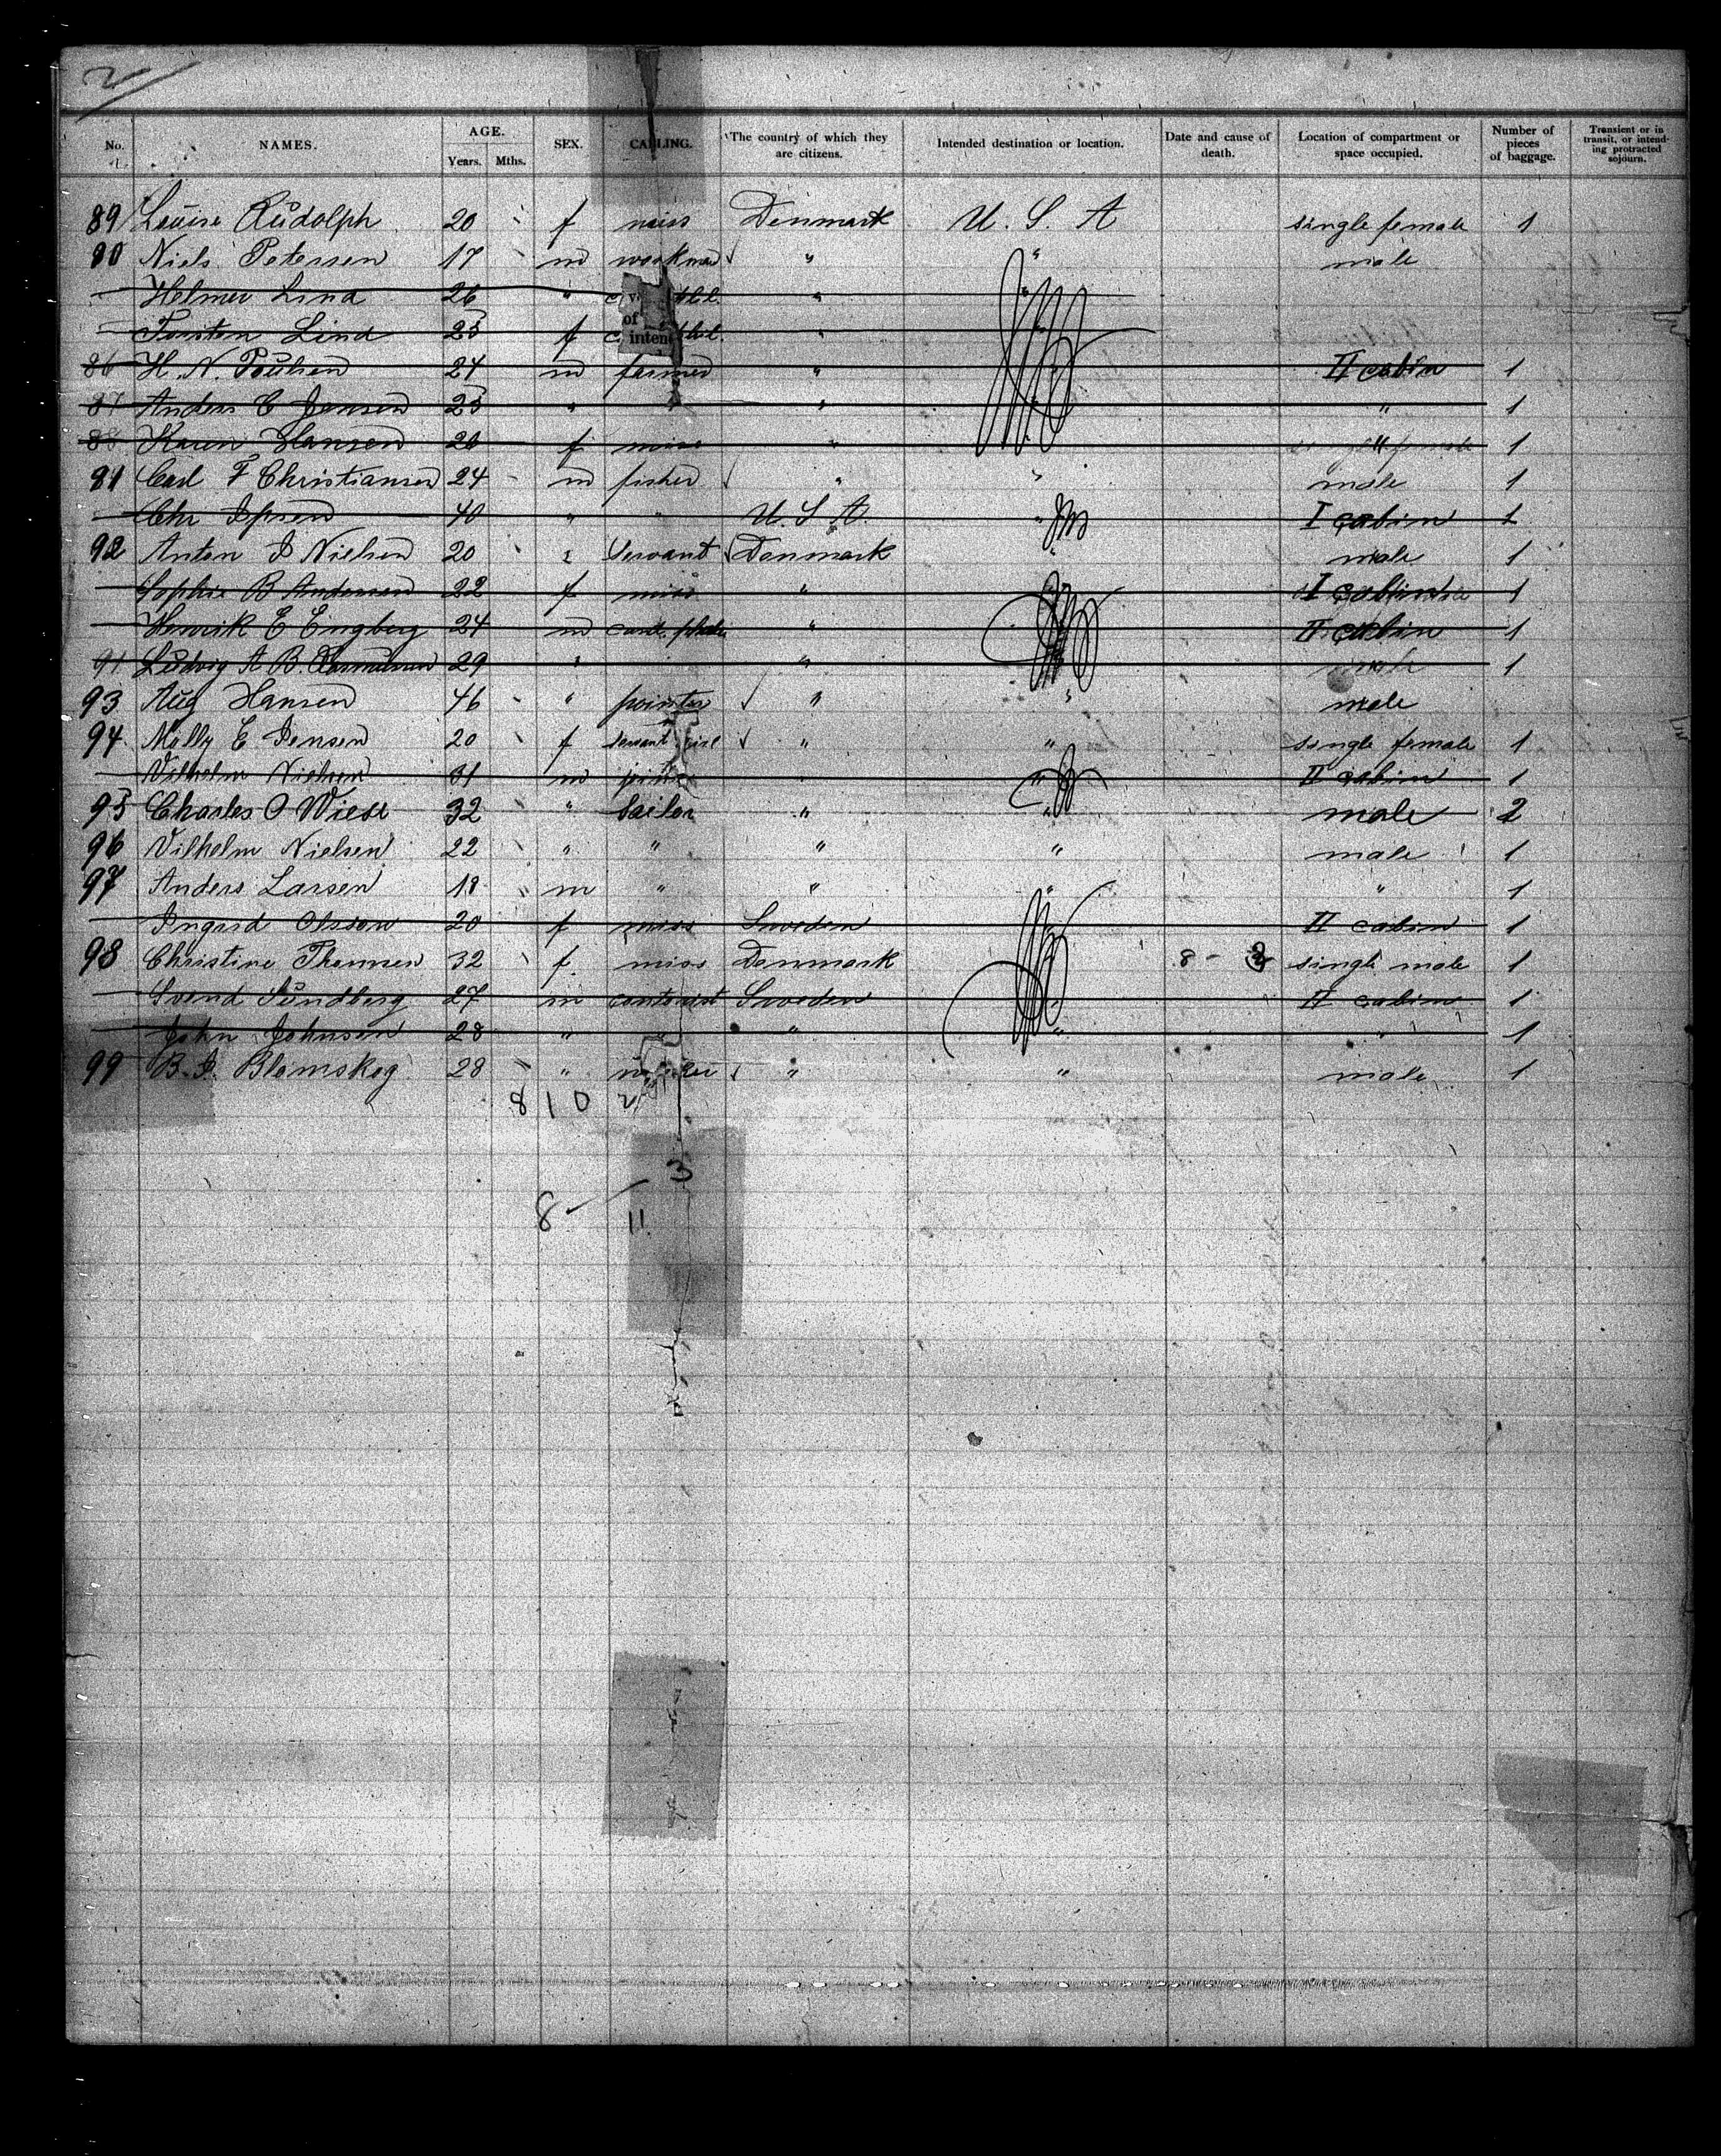 2
No. NAMES. AGE. Years. Mths. SEX. CALLING. The country of which they are citizens. Intended destination or location. Date and cause of death. Location of compartment or space occupied. Number of pieces of baggage. Transient or in transit, or intending protracted sojourn.
89 Louise Rudolph 20 f miss Denmark U. S. A single female 1
90 Niels Petersen 17 m workman " " male
Helmer Lind 26 " "
of
Torsten Lind 25 f "
inten
86 H. N. Poulsen 24 m farmer " II cabin 1
87 Anders C Jensen 25 " " " 1
88 Karen Hansen 26 f miss " 1
91 Carl F Christiansen 24 m fisher " " male 1
Chr Ipsen 40 " " U. S. A. " I cabin 1
92 Anton J Nielsen 20 " Servant Denmark " male 1
Sophie B Andersen 22 f miss " I cabin 1
Henrik E Engberg 24 m " II cabin 1
91 Ludvig A B. Rasmussen 29 " " male 1
93 Aug Hansen 46 " painter " " male
94 Molly E Jensen 20 f servant girl " " single female 1
Vilhelm Nielsen 31 m " II cabin 1
95 Charles O Wiese 32 " Sailor " " male 2
96 Vilhelm Nielsen 22 " " " " male 1
97 Anders Larsen 18 m " " " " 1
Ingrid Olsson 20 f miss Sweden II cabin 1
98 Christine Thomsen 32 f. miss Denmark 8 - 3 single male 1
Svend Sundberg 27 m contorist Sweden II cabin 1
John Johnsen 28 " " " " " 1
99 B. J. Blomskog 28 " " " male 1
8 1 0 2
3
8 11